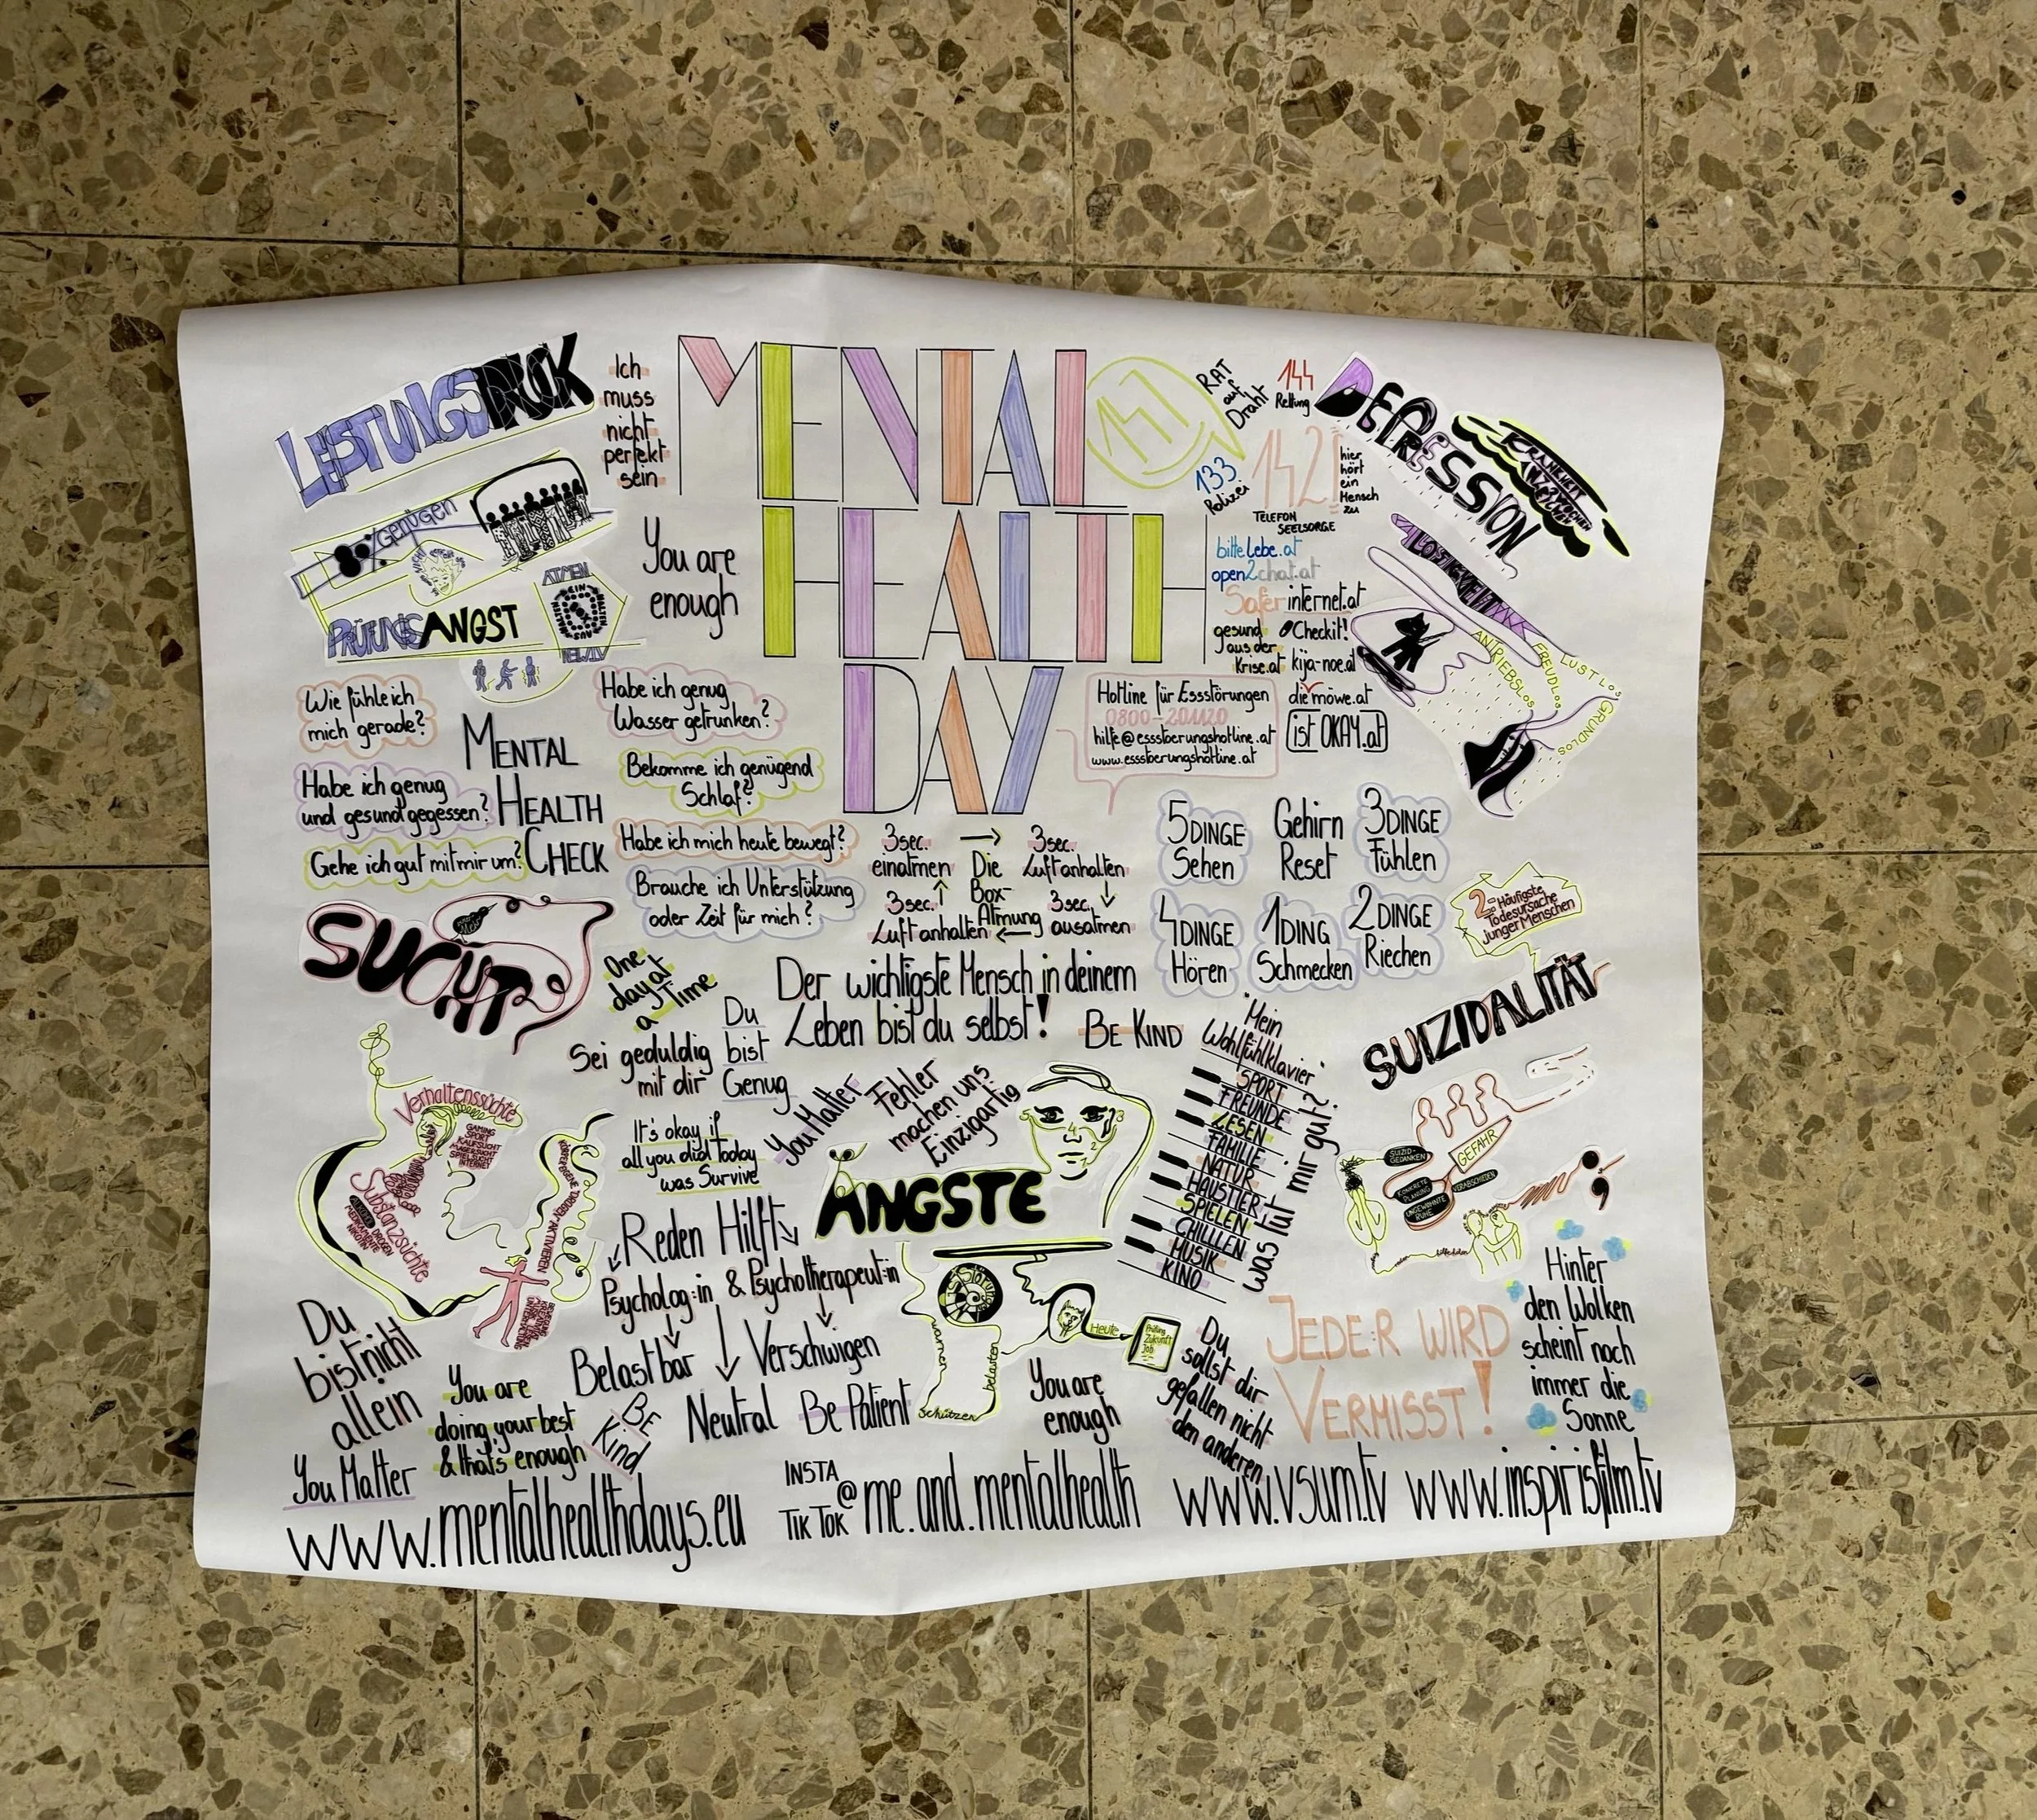 MENTAL
HEALTH
DAY
LEISTUNGSDRUCK
Ich
muss
nicht
perfekt
sein
genügen
You are
enough
PRÜFUNGSANGST
ATMEN
147
RAT
auf
Draht
144
Rettung
133
Polizei
142
TELEFON
SEELSORGE
hier
hört
ein
Mensch
zu
bittelebe.at
open2chat.at
Saferinternet.at
gesund
aus der
Krise.at
Checkit!
kija-noe.at
die möwe.at
ist OKAY.at
Hotline für Essstörungen
0800-201120
hilfe@essstoerungshotline.at
www.essstoerungshotline.at
DEPRESSION
KRANKHEIT
ANTRIEBSLOS
FREUDLOS
LUSTLOS
GRUNDLOS
Wie fühle ich
mich gerade?
Habe ich genug
und gesund gegessen?
Gehe ich gut mit mir um?
MENTAL
HEALTH
CHECK
Habe ich genug
Wasser getrunken?
Bekomme ich genügend
Schlaf?
Habe ich mich heute bewegt?
Brauche ich Unterstützung
oder Zeit für mich?
3sec.
einatmen
Die
Box-
Atmung
3sec.
Luftanhalten
3sec.
ausatmen
3sec.
Luftanhalten
5 DINGE
Sehen
Gehirn
Reset
3 DINGE
Fühlen
4 DINGE
Hören
1 DING
Schmecken
2 DINGE
Riechen
2-Häufigste
Todesursache
junger Menschen
SUIZIDALITÄT
SUCHT
One
day at
a Time
Du
bist
Genug
Sei geduldig
mit dir
Der wichtigste Mensch in deinem
Leben bist du selbst!
BE KIND
You Matter
Fehler
machen uns
Einzigartig
It's okay if
all you did Today
was Survive
Mein
Wohlfühlklavier
SPORT
FREUNDE
LESEN
FAMILIE
NATUR
HAUSTIER
SPIELEN
CHILLLEN
MUSIK
KINO
was tut mir gut?
Verhaltenssüchte
GAMING
SPORT
KAUFSUCHT
MAGERSUCHT
SPIELSUCHT
INTERNET
Substanzsüchte
DROGEN
MEDIKAMENTE
NIKOTIN
KÖRPEREIGENE DROGEN AKTIVIEREN
ÄNGSTE
warnen
schützen
belasten
Heute
Prüfung
Zukunft
Job
SUIZID-
GEDANKEN
KONKRETE
PLANUNG
UNGEWOHNTE
RUHE
VERABSCHIEDEN
GEFAHR
Reden Hilft
Psycholog:in & Psychotherapeut:in
Belastbar
Verschwigen
Neutral
Be Patient
You are
enough
Du
sollst dir
gefallen nicht
den anderen
JEDE:R WIRD
VERMISST!
Hinter
den Wolken
scheint noch
immer die
Sonne
Du
bist nicht
allein
You are
doing your best
& that's enough
BE
Kind
You Matter
www.mentalhealthdays.eu
INSTA
TIK TOK
@me.and.mentalhealth
www.vsum.tv
www.inspirisfilm.tv